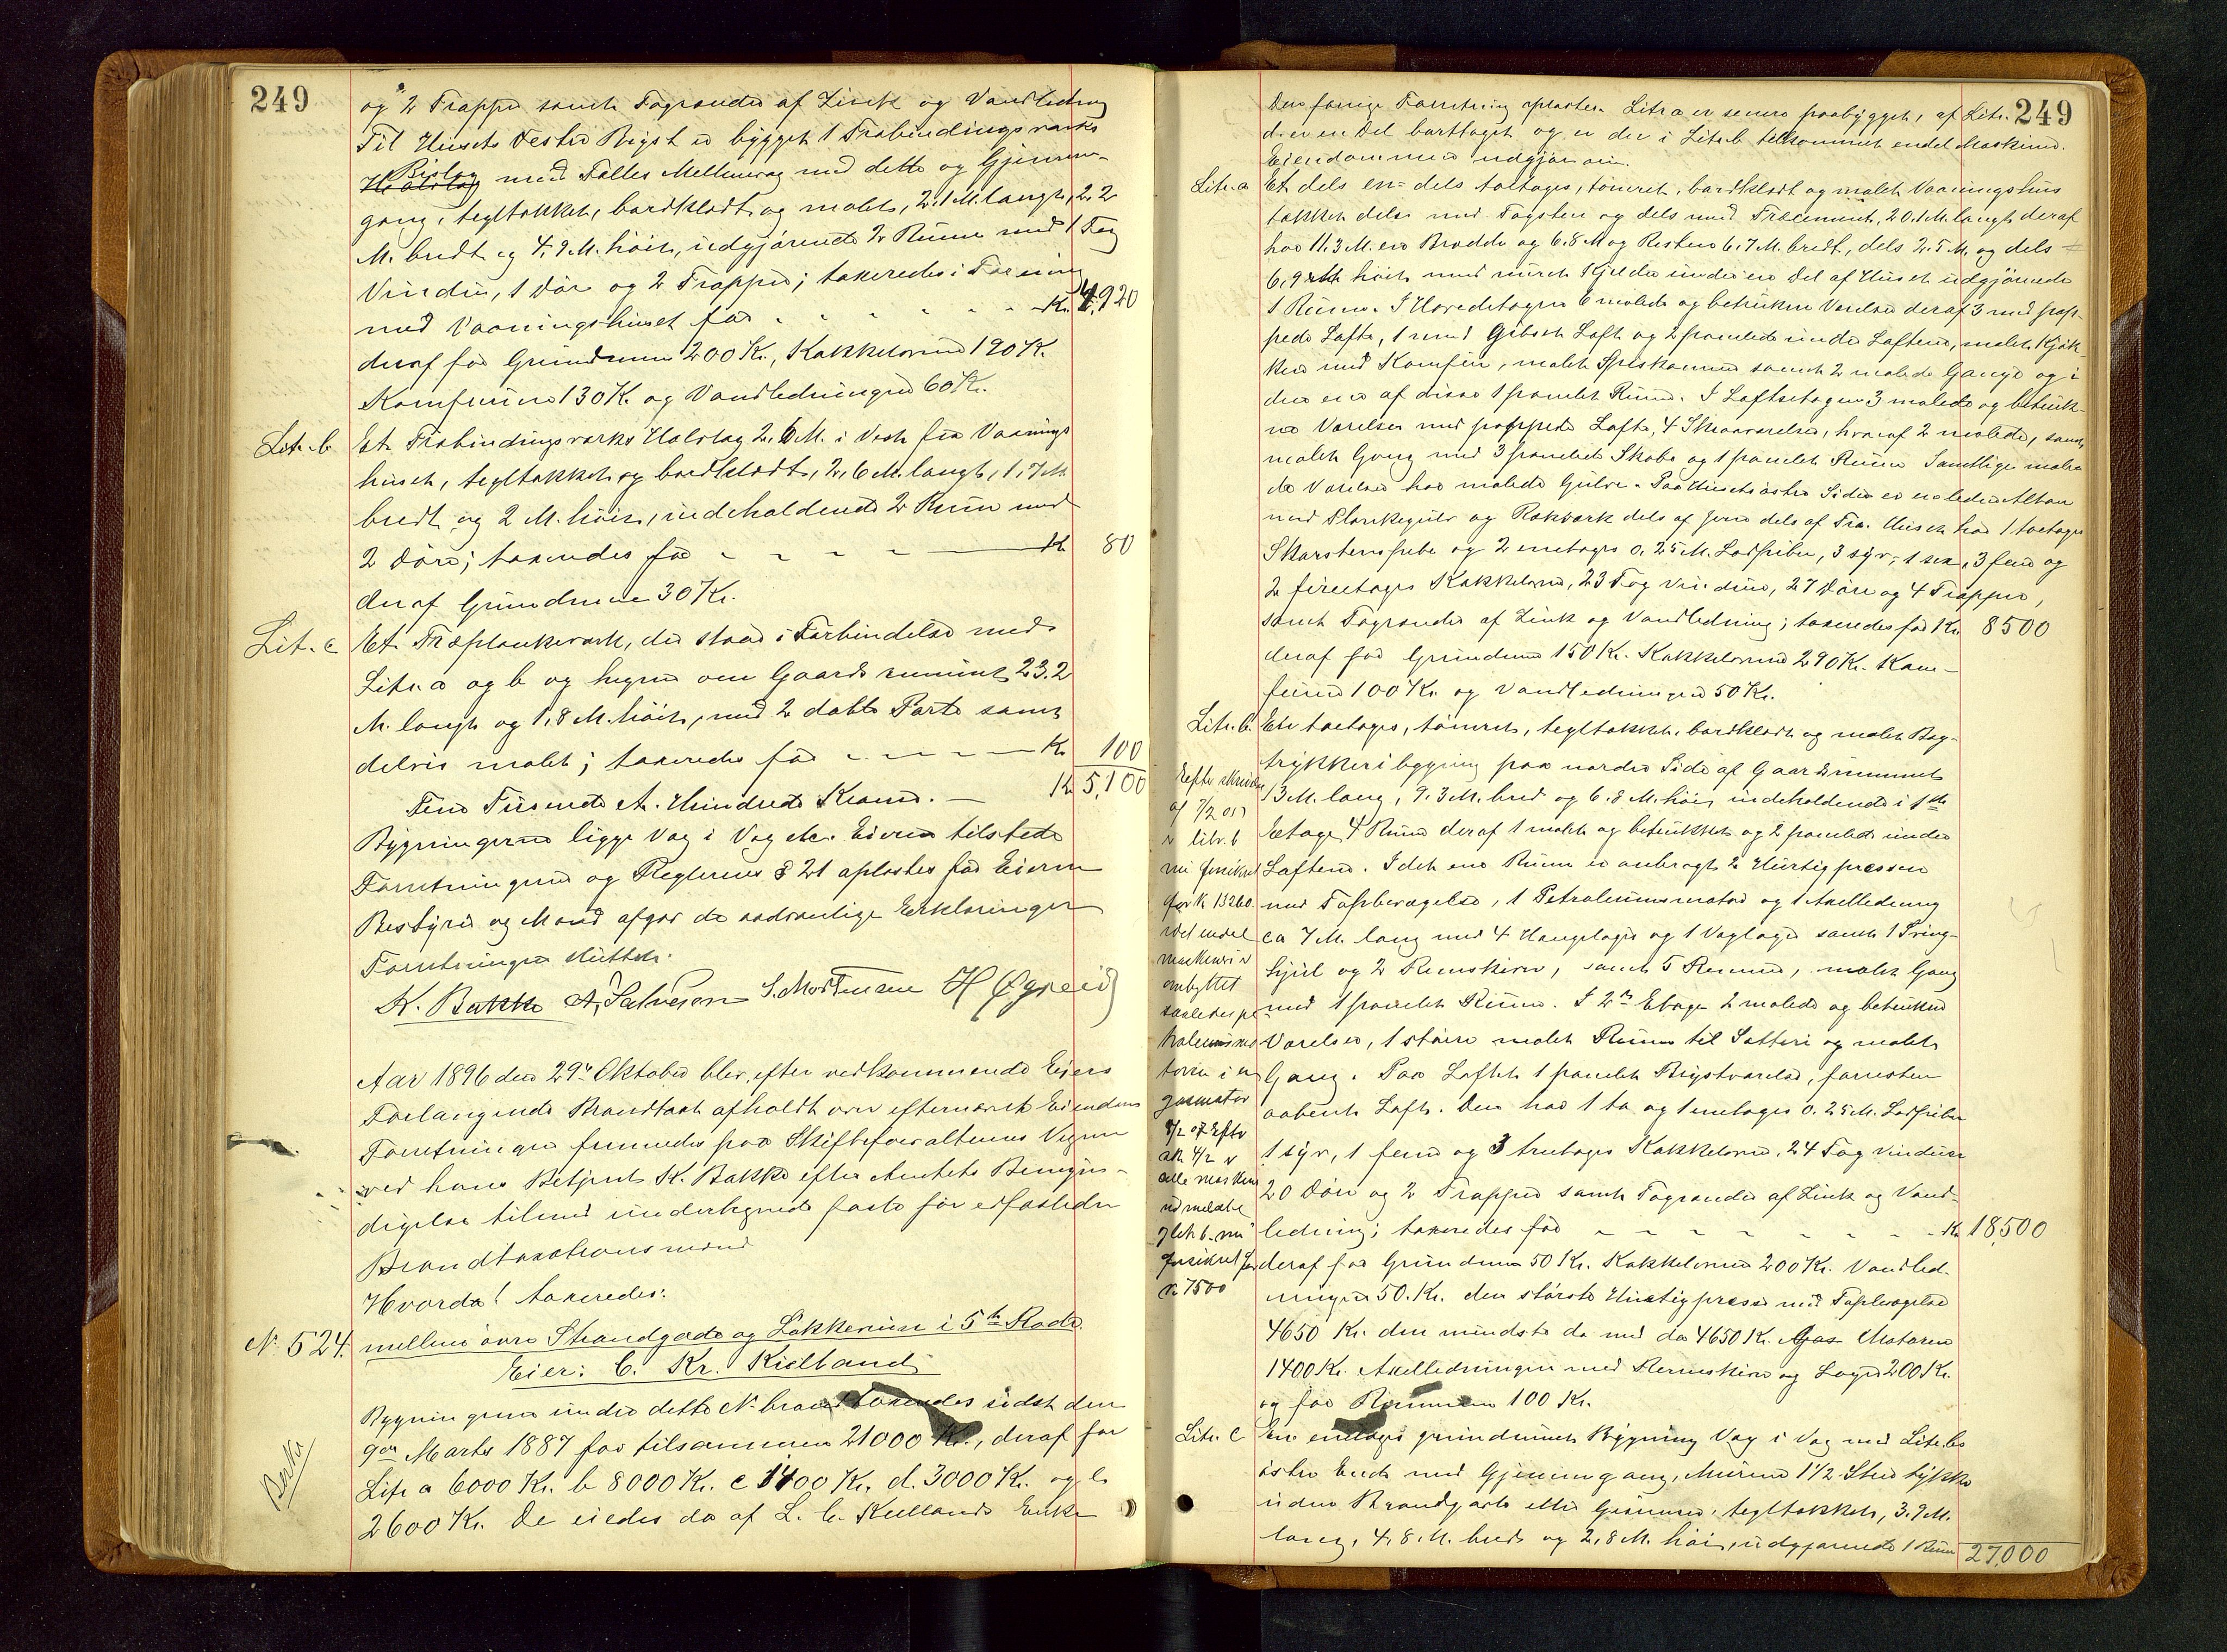 249
og 2 Trapper samt Tagrender af Zink og Vandledning
Til Husets Vestre Bigst er bygget 1 Trabindingsværks
Bislag
med Fælles Mellemvæg med dette og Gjennem-
gang, tegltækket, bordklædt og malet, 2.1 M. langt, 2.2
M. bredt og 4.9 M. höit, udgjörende 2 Rum med 1 Fag
Vinduer, 1 Dör og 2 Trapper; taxeredes i Forening
med Vaaningshuset for - - - - - - Kr. 4,920
deraf for Grundmur 200 Kr., Kakkelovne 190 Kr.
Komfurene 130 K. og Vandledningen 60 Kr.
Litr. b
Et Trabindingsværks Halvtag 2.6 M. i Vest fra Vaanings
huset, tegltækket og bordklædt, 2,6 M. langt, 1,7 M.
bredt og 2 M. höit, indeholdende 2 Rum med
2 Döre; taxeredes for - - - - Kr 80
deraf Grundmur 30 Kr.
Lit. c
Et Træplankeværk, der staar i Forbindelse med
Litr. a og b og hegner om Gaardsrummet 23.2
M. langt og 1,8 M. höit, med 2 dobbte Porte samt
delvis malet; taxeredes for - - - - Kr 100
Fem Tusende Et Hundrede Kroner. - Kr 5,100
Bygningerne ligge Væg i Væg etc. Eieren tilstede
Forretningen og Reglernes § 21 oplæstes for Eieren
Bestyrer og Mænd afgav de sædvanlige Erklæringer
Forretningen sluttet.
K. Bakke A. Salvesen S. Mortensen H Øgreid
Aar 1896 den 29de Oktober blev, efter vedkommende Eiers
Forlangende Brandtaxt afholdt over efternævnte Eiendom
Forretningen fremmedes paa Skifteforvalterens Vegne
ved hans Betjent K. Bakke efter Amtets Bemyn-
digelse tilmed underhegnede faste for edfæstede
Brandtaxationsmænd
Hvorda! taxeredes:
N. 524. mellem övre Strandgade og Løkkeveien i 5te Rode
Eier: C. Kr. Kielland
Bygningerne under dette N. brandtaxeredes sidst den
9de Marts 1887 for tilsammen 21000 Kr., deraf for
Litr a 6000 Kr. b 8000 Kr. c 1400 Kr. d. 3000 Kr. og e
2600 Kr. De eiedes da af L. C. Kiellands Enke
249
Den forrige Forretning oplæstes. Litr a er senere paabygget, af Litr.
d. er en Del borttaget og er der i Litr b tilkommet endel Maskiner.
Eiendommen udgjör nu.
Litr. a
Et dels en- dels toetages, tömret, bordklædt og malet Vaaningshus
tækket dels med Tagsten og dels med Træcement, 20.1 M. langt deraf
har 11.3 M. en Bredde og 6.8 M og Resten 6.7 M. bredt, dels 2.5 M. og dels
6,9 M höit med muret Kjelder under en Del af Huset udgjörende
1 Rum. I Hovedetagen 6 malede og betrukne Værelser deraf 3 med pap-
pede Lofte, 1 med Gibset Loft og 2 panelede under Loftene, malet Kjök-
ken med Komfur, malet Spiskammer samt 2 malede Gange og i
den ene af disse 1 panelet Rum. I Loftsetagen 3 malede og betruk-
ne Værelser med pappede Lofte, 4 Skraaværelser, hvoraf 2 malede, samt
malet Gang med 3 panelede Skabe og 1 panelet Rum Samtlige male-
de Værelser har malede Gulve. Paa Husets östre Side er en Altan
med Plankegulv og Rækværk dels af Jern dels af Træ. Huset har 1 toetages
Skorstenspibe og 2 enetages 0.25 M. Lodpiber, 3 syv-, 1 sex-, 3 fem og
2 fireetages Kakkelovne, 23 Fag Vinduer, 27 Döre og 4 Trapper,
samt Tagrender af Zink og Vandledning; taxeredes for Kr. 8500
deraf for Grundmur 150 Kr. Kakkelovne 290 Kr. Kom-
furene 100 Kr. og Vandledningen 50 Kr.
Litr. b.
En toetages, tömret, tegltækket, bordklædt og malet Bog-
trykkeribygning paa nordre Side af Gaardsrummet
13 M. lang, 9.3 M. bred og 6.8 M. höi, indeholdende i 1ste
Etage 4 Rum deraf 1 malet og betrukket og 2 panelede under
Loftene. I det ene Rum er anbragt 2 Hurtigpresser
med Tapbevægelse, 1 Petroleumsmotor og 1 Axelledning
ca 7 M. lang med 4 Hængelagre og 1 Væglager samt 1 Sving-
hjul og 2 Remskiver, samt 5 Remmer, malet Gang
med 1 panelet Rum. I 2den Etage 2 malede og betrukne
Værelser, 1 större malet Rum til Sætteri og malet
Gang. Paa Loftet 1 panelet Bigstværelse, forresten
aabent Loft. Den har 1 to og 1 enetages 0.25 M. Lodpiber
1 syv, 1 fem og 3 treetages Kakkelovne, 24 Fag Vinduer
20 Döre og 2 Trapper samt Tagrender af Zink og Vand-
ledning; taxeredes for - - - - - - - Kr 18,500
deraf for Grundmur 50 Kr. Kakkelovne 200 Kr. Vandled-
ningen 50. Kr. den störste Hurtigpresse med Tapbevægelse
4650 Kr. den mindste do med do 4650 Kr. Gas Motoren
1400 Kr. Axelledningen med Remskiver og Lagre 200 Kr.
og for Remmene 100 Kr.
Efter skrivelse
af 7/2 07
er litr. b
nu forsikret
for K 13260.
idet endel
maskiner er
ombyttet
saaledes pe-
troleumsmo-
toren i en
gasmotor
8/2 07 Efter
alle maskiner
udmeldte
litr b. nu
forsikret for
Kr 7500
Litr. c
En enetages grundmuret Bygning Væg i Væg med Litr. bs
östre Ende med Gjennemgang, Murene 1 1/2 Sten tykke
uden Brandgavle eller Gesimser, tegltækket, 3.7 M.
lang, 4,8 M. bred og 2,8 M. höi, udgjörende 1 Rum
27,000
Berka